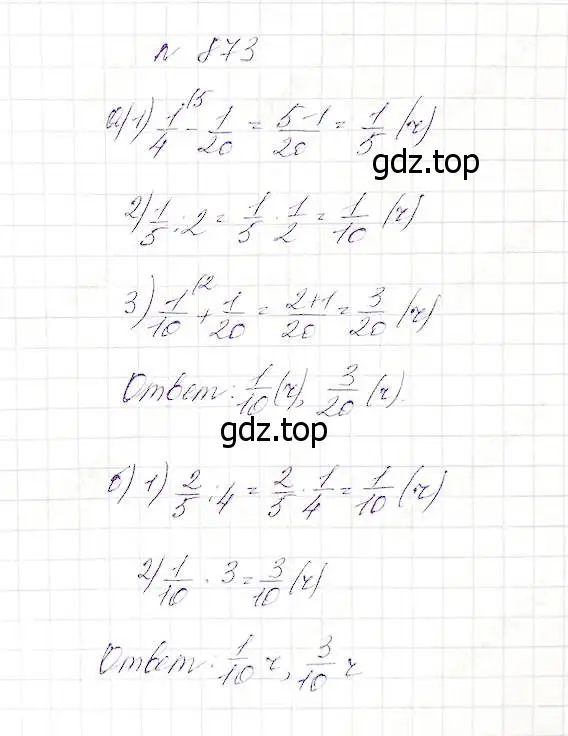 № 873
а) 1) 1/4 (5 - 1/20 = 5-1/20 = 1/5 (ч)
gdz.top
2) 1/5 : 2 = 1/5 · 1/2 = 1/10 (ч)
3) 1/10 (2 + 1/20 = 2+1/20 = 3/20 (ч)
Ответ: 1/10 (ч), 3/20 (ч).
gdz.top
б) 1) 2/5 : 4 = 2/5 · 1/4 = 1/10 (ч)
2) 1/10 · 3 = 3/10 (ч)
Ответ: 1/10 ч, 3/10 ч